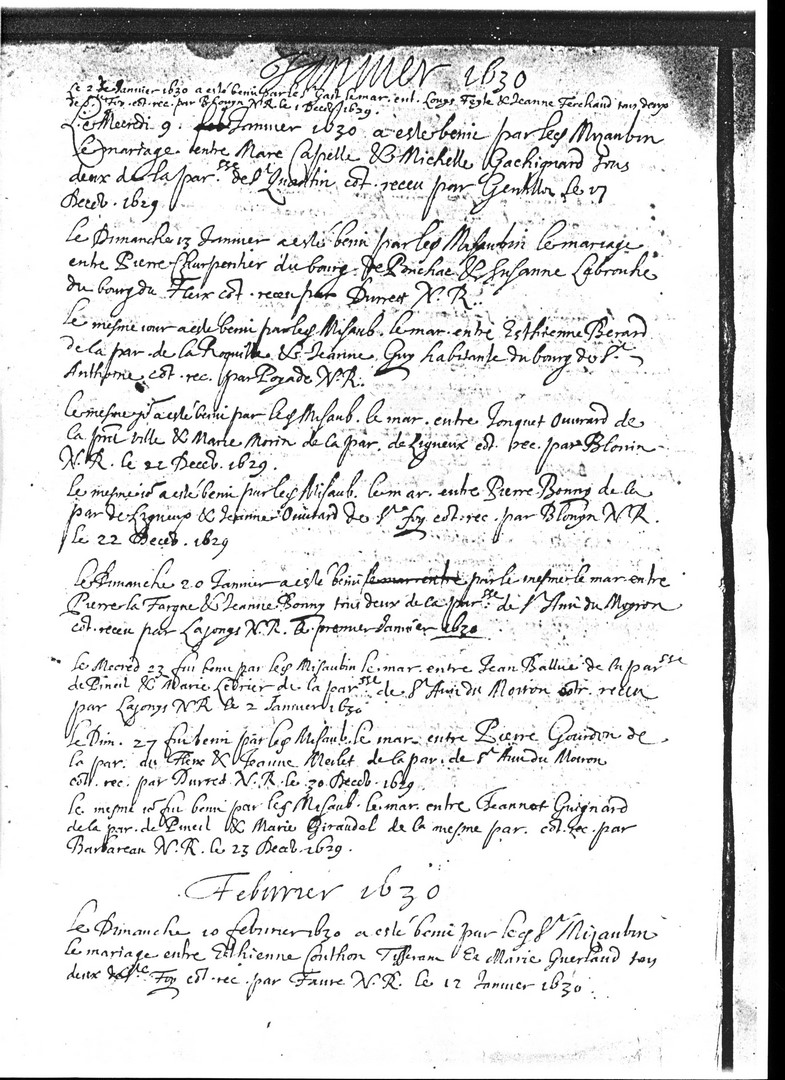 Janvier 1630
Le 2 Janvier 1630 a esté beni par le Sr le mar. ent. Louys Feyte & Jeanne Ferchaud tous deux
de Ste Foy. cot. rec. par Blouyn N.R. le 1 Deceb 1629.
Le Mecredi 9. Janvier 1630 a esté beni par led Sr Mizaubin
le mariage entre Marc Capelle & Michelle Gachignard tous
deux de la par.sse de St Quantin cot. receu par Gentillot le 17
Deceb. 1629
Le Dimanche 13 Janvier a esté beni par led Sr Misaubin le mariage
entre Pierre Charpentier du bourg de Ponchac & Susanne Labrouhe
du bourg du Fleix cot. receu par Durret N.R.
Le mesme jour a esté beni par led Sr Misaub. le mar. entre Esthienne Berard
de la par. de la Roquille & Jeanne Guy habitante du bourg de St
Anthoine cot. rec. par Poyade N.R.
Le mesme jor a esté beni par led Sr Misaub. le mar. entre Jonquet Ouvrard de
la pnt ville & Marie Morin de la par. de Ligneux cot. rec. par Blouin
N.R. le 22 Deceb. 1629.
Le mesme jor a esté beni par led Sr Misaub. le mar. entre Pierre Bonny de la
par de Ligneux & Jeanne Ouvrard de Ste Foy cot. rec. par Blouyn N.R.
le 22 Deceb. 1629
Le Dimanche 20 Janvier a esté beni le mar entre par le mesme le mar. entre
Pierre la Fargue & Jeanne Bonny tous deux de la par.sse de St Avi du Moyron
cot. receu par Lajonys N.R. le premier Janvier 1630
Le Mecred 23 fut beni par led Sr Misaubin le mar. entre Jean Ballue de la parsse
de Pineil & Marie Levrier de la parsse de St Avi du Moiron cotr. receu
par Lajonys N.R. le 2 Janvier 1630
Le Dim. 27 fut beni par led Sr Misaub. le mar. entre Pierre Gourdon de
la par. du Fleix & Jeanne Merlet de la par. de St Avi du Moiron
cot. rec. par Durret N.R. le 30 Deceb. 1629
Le mesme jor fut beni par led Sr Misaub. le mar. entre Jeannot Guignard
de la par. de Pineil & Marie Giraudel de la mesme par. cot. rec. par
Barbareau N.R. le 23 Deceb. 1629.
Febvrier 1630
Le Dimanche 10 febvrier 1630 a esté beni par led Sr Mizaubin
le mariage entre Esthienne Couthon Tisseran Et Marie Guerlaud tous
deux de Ste Foy cot. rec. par Faure N.R. le 12 Janvier 1630.